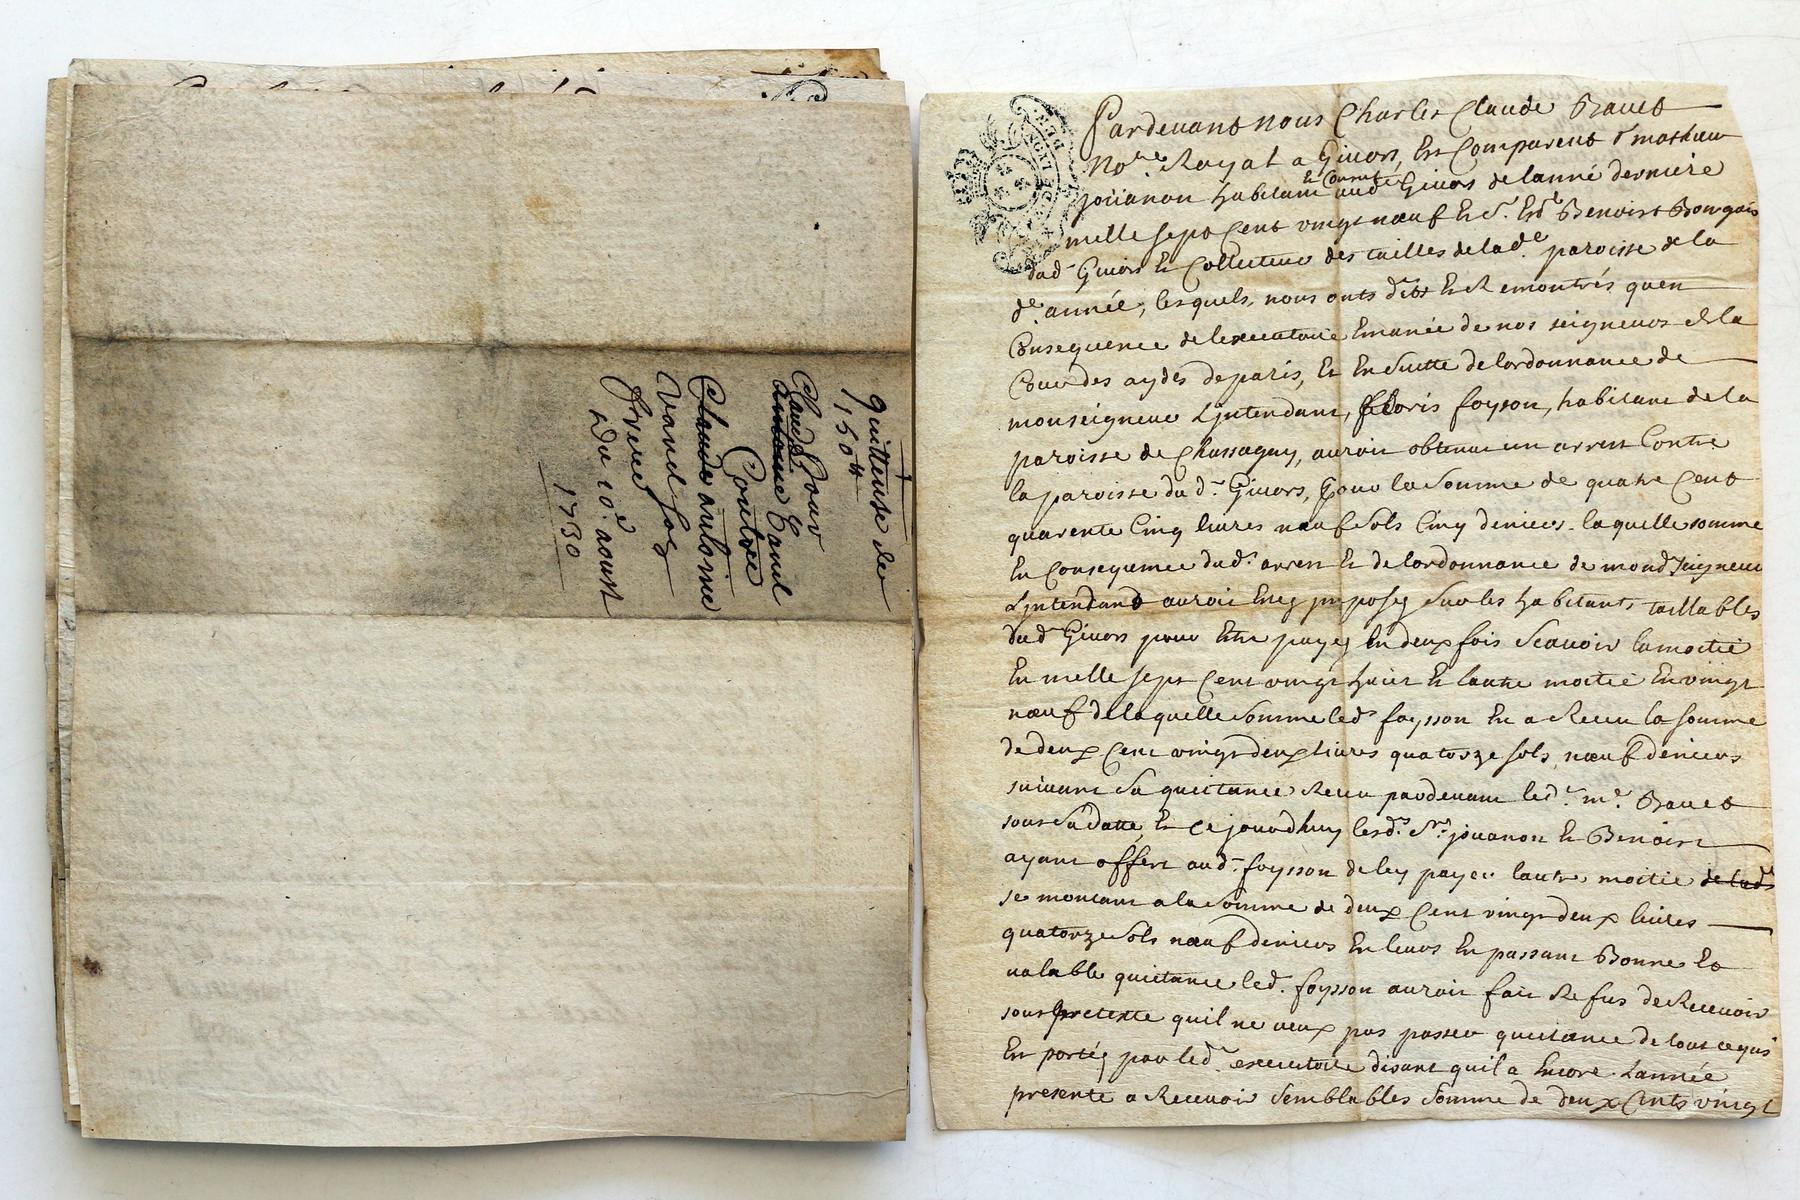 quittense de
150#
Claude pour
antoine Conil
Contre
Claude antoine
Vand
frere
Du 10e aoust
1730
Pardevant nous Charles Claude Bauet
No.re Royal a Giuors, Est Comparent Sr mathieu
joüanon habitant Et Consul dud Giuors de lanné derniere
mille sept Cent vingt nœuf Et Sr. Esd. Benoist Bourgois
dud Giuors Et Collecteur des tailles de lade. paroisse de la
de. année, lesquels nous onts dits Et Remontrés quen
Consequence de lexecutoire Emanée de nos seigneurs de la
Cour des aydes de paris, Et En suitte de lordonnance de
monseigneur Lyntendant, floris foyson, habitant de la
paroisse de Chassagny, auroit obtenu un arrest Contre
la paroisse dud. Giuors, pour la somme de quatre Cent
quarente Cinq liures nœuf sols Cinq deniers. laquelle somme
En Consequence dud. arrest Et de lordonnance de mond seigneur
Lyntendand auroit Etez jmposez sur les habitants taillables
dud Giuors pour Etre payez En deux fois Scauoir la moitié
En mille sept Cent vingt huit Et lautre moitié En vingt
nœuf de laquelle somme led. foysson En a Receu la somme
de deux Cent vingt deux liures quatorze sols nœuf deniers
suiuant sa quittance Receu pardeuant led. me. Bauet
sous sa datte, Et ce jourdhuy lesd. Srs joüanon Et Benoist
ayant offert aud. foysson de luy payer lautre moitié de lad
se montant a la somme de deux Cent vingt deux liures
quatorze sols nœuf deniers En leurs En passant Bonne Et
valable quittance led. foysson auroit fait Refus de Receuoir
sous pretexte quil ne veux pas passer quittance de tout ce qui
Est portéz par led. executoire disant quil a Encore Lannée
presente a Receuoir semblables somme de deux Cents vingt